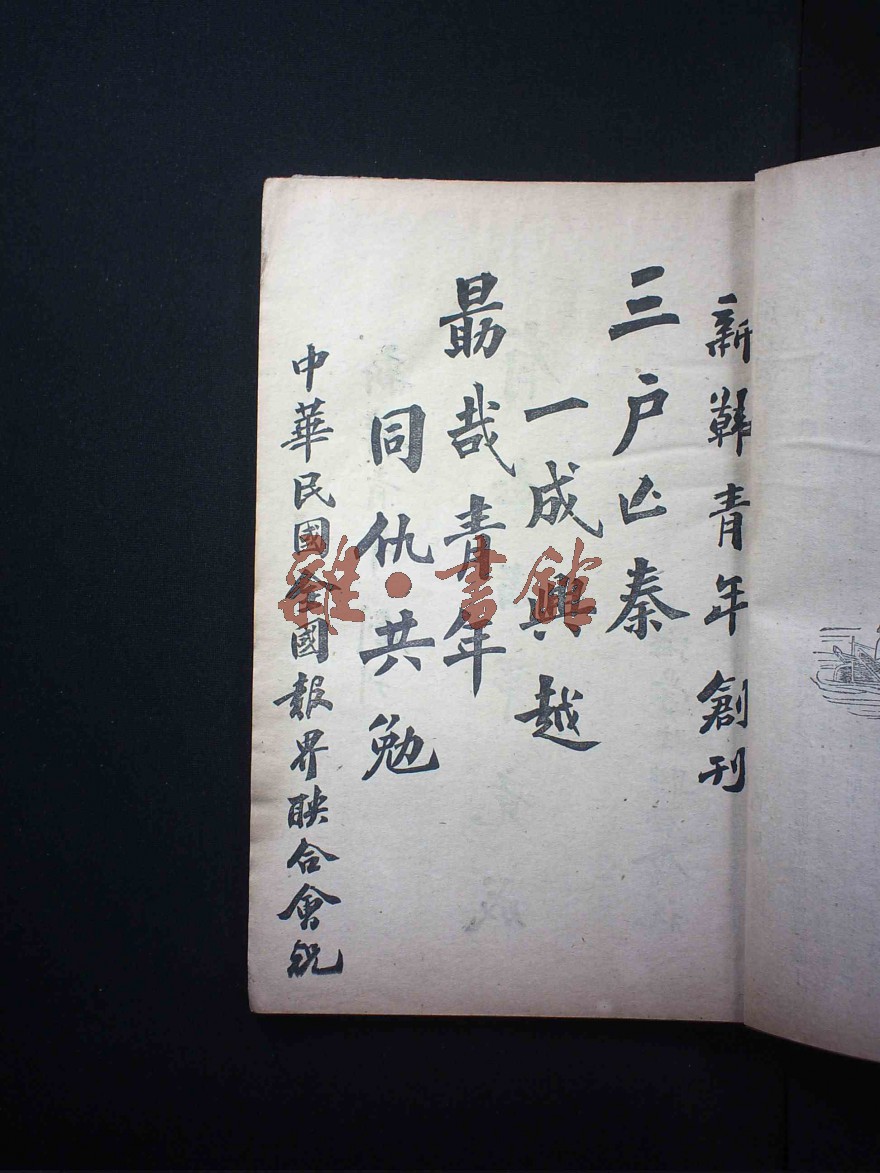 新韓青年創刊
三户亡秦
一成興越
勗哉青年
同仇共勉
中華民國全國報界联合會祝
雜·書館